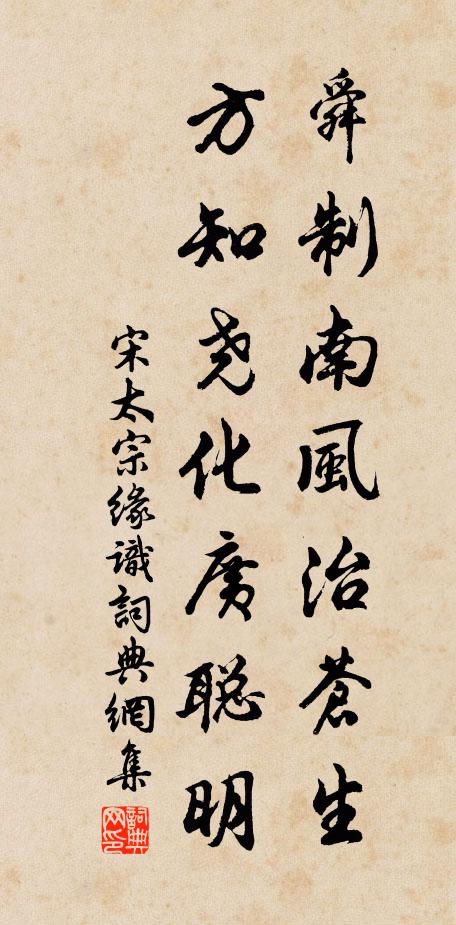 舜制南風治蒼生
方知堯化廣聰明
宋太宗緣識詞典網集
詞典網印